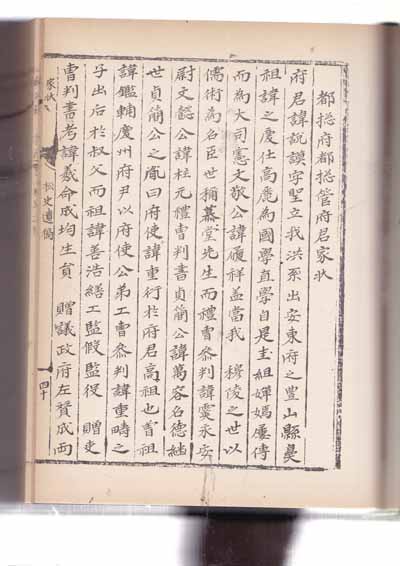 都摠府都摠管府君家狀
府君諱說謨字聖立我洪系出安東府之豊山縣
祖諱之慶仕高麗為國學直學自是圭組嬋嫣屢傳
而為大司憲文敬公諱履祥盖當我 穆陵之世以
儒術為名臣世稱慕堂先生而禮曹參判諱霙永安
尉文懿公諱柱元禮曹判書貞簡公諱萬容名德
世貞簡公之胤曰府使諱重衍於府君高祖也曾祖
諱鑑輔廣州府尹以府使公弟工曹叅判諱重疇之
子出后於叔父而祖諱善浩繕工監假監役 贈吏
曹判書考諱羲命成均生員 贈議政府左贊成兩
家狀
松史遺稿
四十